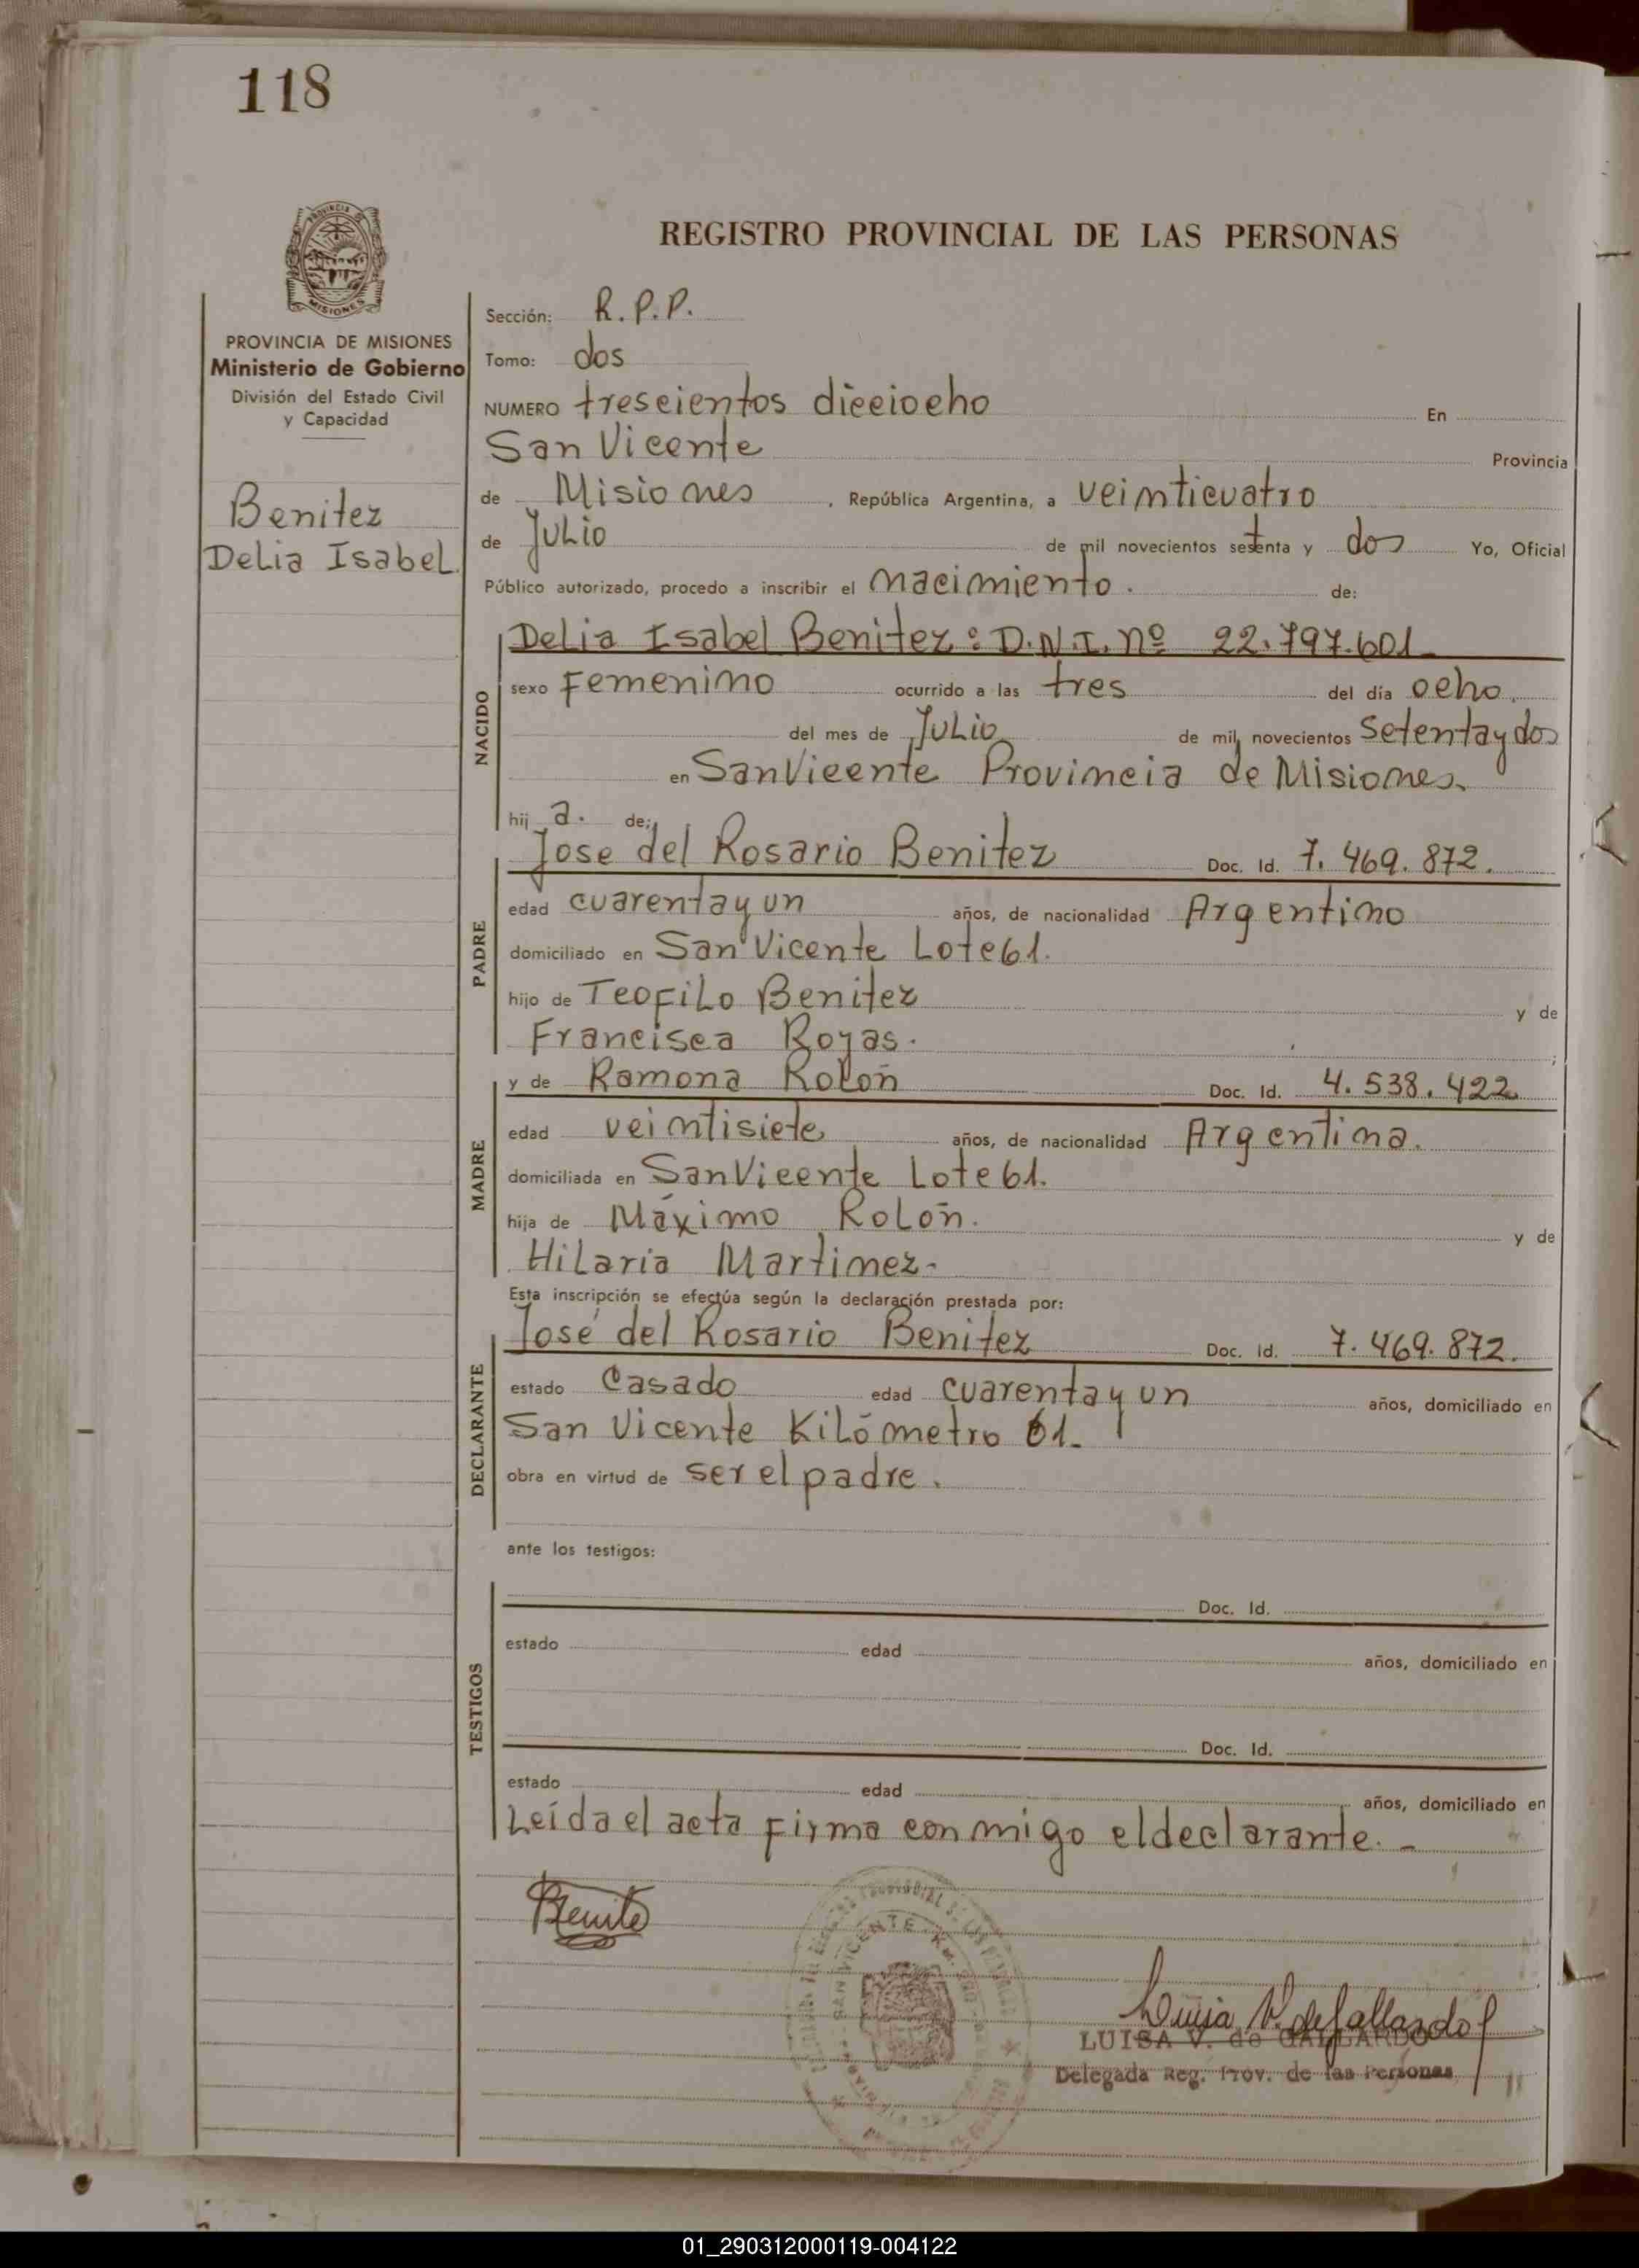 118
PROVINCIA DE
MISIONES
REGISTRO PROVINCIAL DE LAS PERSONAS
PROVINCIA DE MISIONES
Ministerio de Gobierno
División del Estado Civil
y Capacidad
Benitez
Delia Isabel.
Sección: R.P.P.
Tomo: dos
NUMERO trescientos dieciocho En
San Vicente Provincia
de Misiones, República Argentina, a veinticuatro
de Julio de mil novecientos setenta y dos Yo, Oficial
Público autorizado, procedo a inscribir el nacimiento. de:
NACIDO
Delia Isabel Benitez: D.N.I. nº 22.797.601
sexo Femenino ocurrido a las tres del día ocho.
del mes de Julio de mil novecientos setenta y dos
en San Vicente Provincia de Misiones.
hij a. de:
PADRE
Jose del Rosario Benitez Doc. Id. 7.469.872.
edad cuarenta y un años, de nacionalidad Argentino
domiciliado en San Vicente Lote 61.
hijo de Teofilo Benitez y de
Francisca Royas. ;
MADRE
y de Ramona Rolón Doc. Id. 4.538.422.
edad veintisiete años, de nacionalidad Argentina.
domiciliada en San Vicente Lote 61.
hija de Máximo Rolón. y de
Hilaria Martinez-
Esta inscripción se efectúa según la declaración prestada por:
DECLARANTE
José del Rosario Benitez Doc. Id. 7.469.872.
estado Casado edad cuarenta y un años, domiciliado en
San Vicente Kilómetro 61.
obra en virtud de ser el padre.
ante los testigos:
TESTIGOS
Doc. Id.
estado edad años, domiciliado en
Doc. Id.
estado edad años, domiciliado en
Leída el acta firma conmigo el declarante. -
Benito
SAN VICENTE
Luisa V. de Gallardo
LUISA V. de GALLARDO
Delegada Reg. Prov. de las Personas
01_290312000119-004122